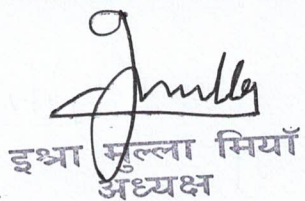 इश्रा मुल्ला मियाँ
अध्यक्ष